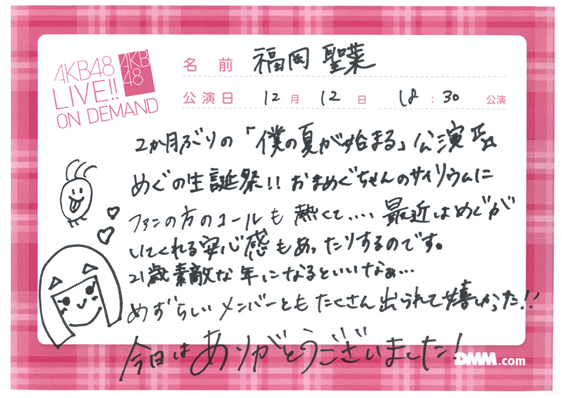 AKB48
LIVE!!
ON DEMAND
AKB
48
名 前 福岡 聖菜
公演日 12月 12日 18:30 公演
2か月ぶりの「僕の夏が始まる」公演
めぐの生誕祭!! おまめぐちゃんのサイリウムに
ファンの方のコールも 熱くて.... 最近はめぐが
いてくれる安心感もあったりするのです。
21歳素敵な年になるといいなぁ...
めずらしいメンバーともたくさん出られて嬉しかった!!
今日はありがとうございました!
DMM.com